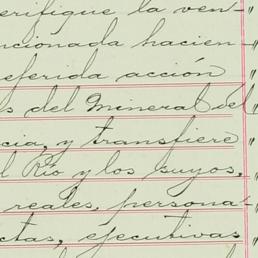 erifique la ven-"
ncionada hacien-"
eferida acción "
s del Mineral del
cia, y transfiere "
l Rio y los suyos, "
reales, persona- "
ctas, ejecutivas "